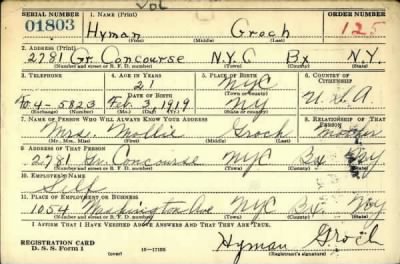 Vol
SERIAL NUMBER 1. NAME (Print) ORDER NUMBER
01803 Hyman Groch 12
(First) (Middle) (Last)
2. ADDRESS (Print)
2781 Gr. Concourse N.Y.C Bx N.Y.
(Number and street or R. F. D. number) (Town) (County) (State)
3. TELEPHONE 4. AGE IN YEARS 5. PLACE OF BIRTH 6. COUNTRY OF CITIZENSHIP
21 NYC
DATE OF BIRTH (Town or county)
4-5823 Feb. 3, 1919 NY U.S.A.
(Exchange) (Number) (Mo.) (Day) (Yr.) (State or country)
7. NAME OF PERSON WHO WILL ALWAYS KNOW YOUR ADDRESS 8. RELATIONSHIP OF THAT PERSON
Mrs. Mollie Groch Mother
(Mr., Mrs., Miss) (First) (Middle) (Last)
9. ADDRESS OF THAT PERSON
2781 Gr. Concourse NYC Bx NY
(Number and street or R. F. D. number) (Town) (County) (State)
10. EMPLOYER'S NAME
Self
11. PLACE OF EMPLOYMENT OR BUSINESS
1054 Washington Ave NYC Bx. NY
(Number and street or R. F. D. number) (Town) (County) (State)
I AFFIRM THAT I HAVE VERIFIED ABOVE ANSWERS AND THAT THEY ARE TRUE.
REGISTRATION CARD
D. S. S. FORM 1 (over) Hyman Groch
(Registrant's signature)